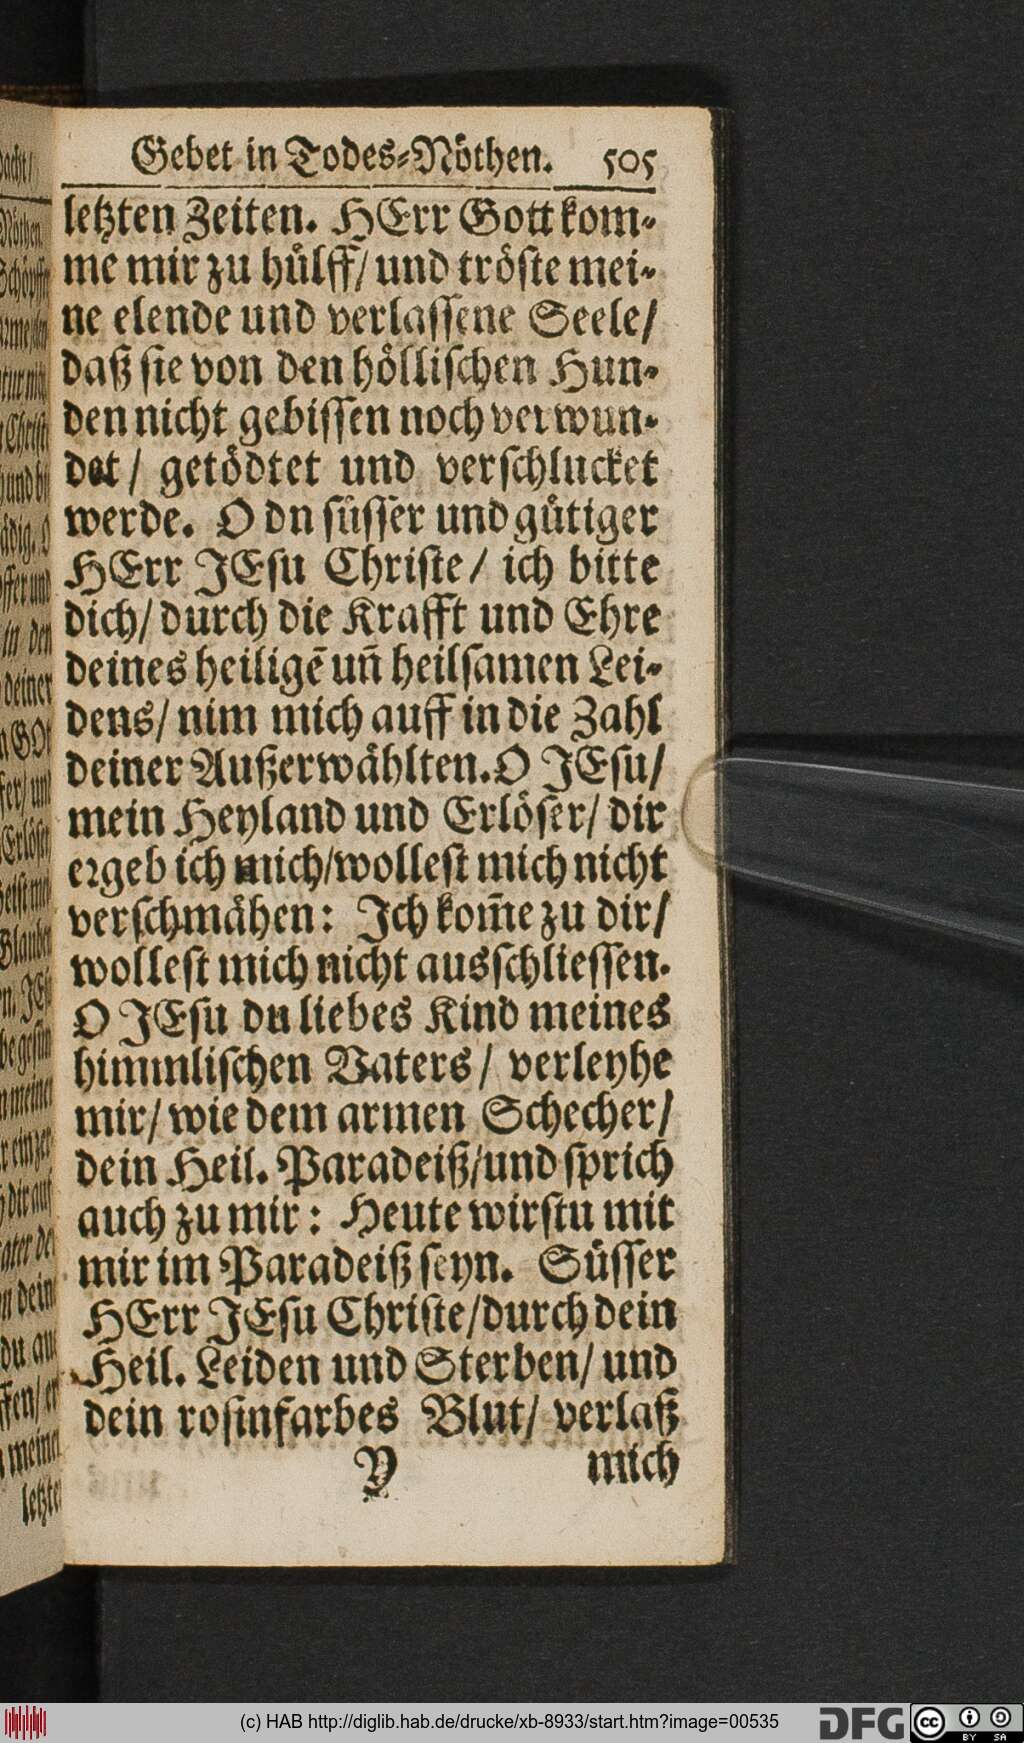 Gebet in Todes-Nöthen. 505
letzten Zeiten. HErr Gott kom-
me mir zu hülff/ und tröste mei-
ne elende und verlassene Seele/
daß sie von den höllischen Hun-
den nicht gebissen noch verwun-
det/ getödtet und verschlucket
werde. O dn süsser und gütiger
HErr JEsu Christe/ ich bitte
dich/ durch die Krafft und Ehre
deines heiligē uñ heilsamen Lei-
dens/ nim mich auff in die Zahl
deiner Außerwählten. O JEsu/
mein Heyland und Erlöser/ dir
ergeb ich mich/ wollest mich nicht
verschmähen: Ich kom̄e zu dir/
wollest mich nicht ausschliessen.
O JEsu du liebes Kind meines
himmlischen Vaters/ verleyhe
mir/ wie dem armen Schecher/
dein Heil. Paradeiß/ und sprich
auch zu mir: Heute wirstu mit
mir im Paradeiß seyn. Süsser
HErr JEsu Christe/ durch dein
Heil. Leiden und Sterben/ und
dein rosinfarbes Blut/ verlaß
Y mich
(c) HAB http://diglib.hab.de/drucke/xb-8933/start.htm?image=00535
DFG
cc BY SA